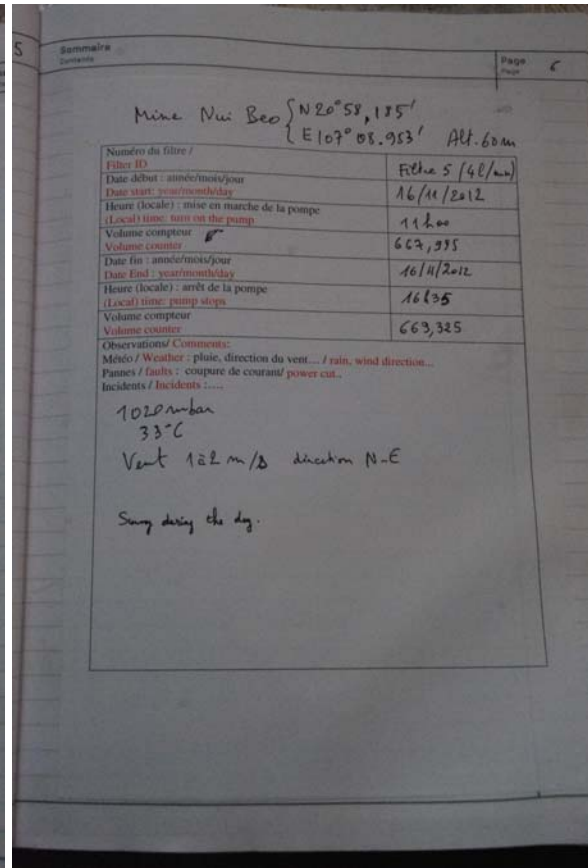 5
Sommaire
Contents
Page
Page
6
Mine Nui Beo { N 20° 58,185'
E 107° 08.953' Alt. 60m
Numéro du filtre /
Filter ID
Filtre 5 (4l/min)
Date début : année/mois/jour
Date start: year/month/day
16/11/2012
Heure (locale) : mise en marche de la pompe
(Local) time: turn on the pump
11h00
Volume compteur
Volume counter
667,995
Date fin : année/mois/jour
Date End : year/month/day
16/11/2012
Heure (locale) : arrêt de la pompe
(Local) time: pump stops
16h35
Volume compteur
Volume counter
669,325
Observations/ Comments:
Météo / Weather : pluie, direction du vent.... / rain, wind direction...
Pannes / faults : coupure de courant/ power cut..
Incidents / Incidents :....
1020 mbar
33°C
Vent 1 à 2 m/s direction N-E
Sunny during the day.